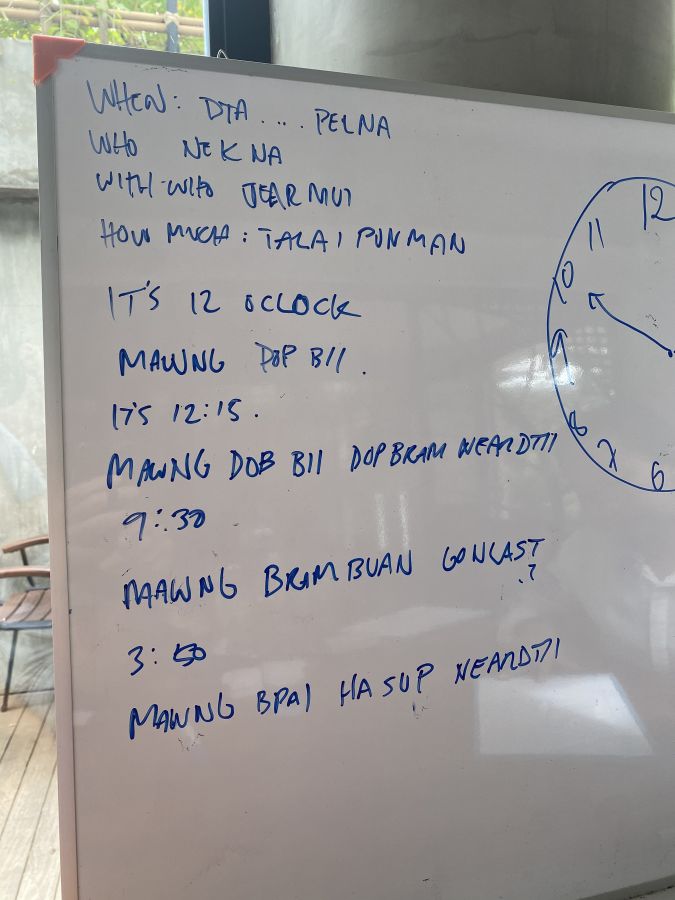 WHEN: DTA .... PELNA
WHO NEK NA
WITH-WHO JEAR MUI
HOW MUCH: TALAI PUNMAN
IT'S 12 OCLOCK
MAWNG DOP BII.
IT'S 12:15.
MAWNG DOB BII DOPBRAM NEARDTII
9:30
MAWNG BRAMBUAN CONLAST
.?
3:50
MAWNG BPAI HA SUP NEARDTII
12
11
10
9
8
7
6